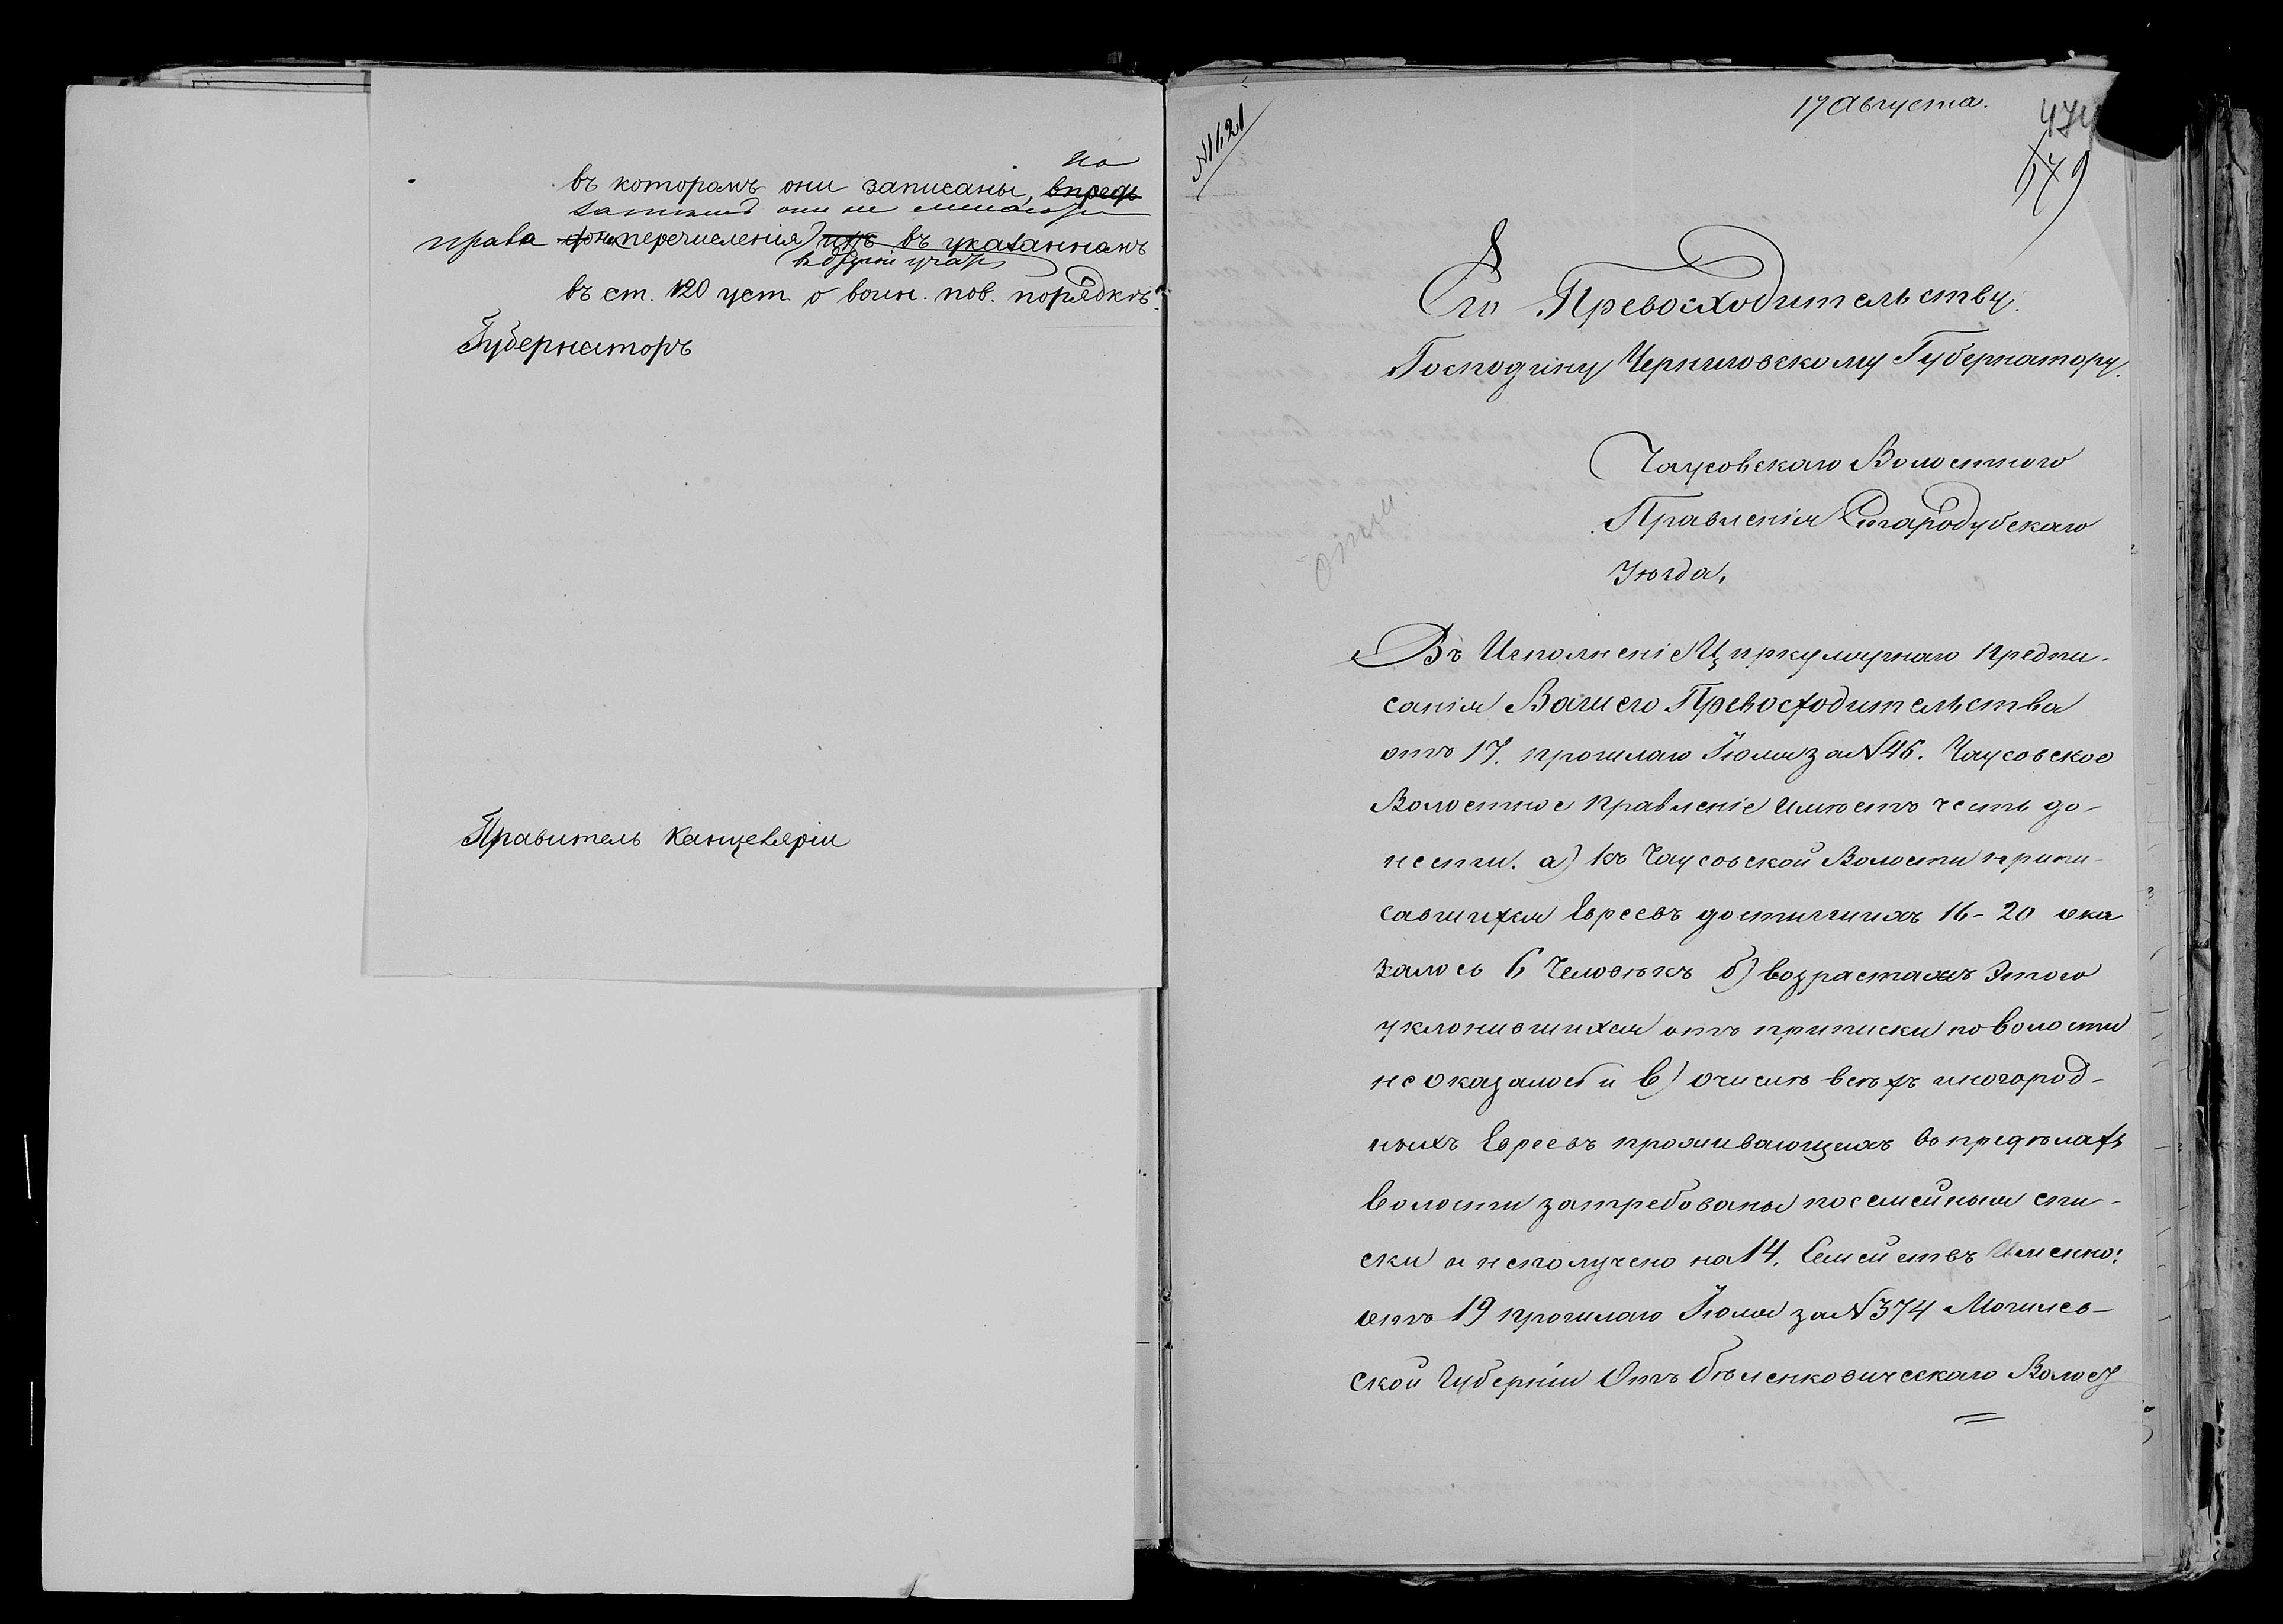 но
въ которомъ они записаны, впредь
затемъ они не имеютъ
права для перечисленія ихъ въ указанномъ
въ другие учас
въ ст. 120 уст. о воин. пов. порядкѣ.
Губернаторъ
Правитель Канцеляріи
17 Августа.
474
579
№1621
Его Превосходительству
Господину Черниговскому Губернатору.
Чаусовскаго Волостного
Правленія Стародубскаго
Уѣзда.
Въ Исполненіе Циркулярнаго предпи-
санія Вашего Превосходительства
отъ 17. прошлаго Іюля за №46. Чаусовское
Волостное правленіе имѣетъ честь до-
нести. а) къ Чаусовской Волости припи-
савшихся Евреевъ достигшихъ 16-20 ока
залось 6 Человѣкъ б) возрастахъ Этого
уклонившихся отъ приписки по волости
не оказалось и в) о числѣ всѣхъ иногород-
ныхъ Евреевъ проживающихъ въ предѣлахъ
волости затребованы посемейныя спи-
ски и неполучено на 14. Семействъ Именно:
отъ 19 прошлаго Іюля за №374 Могилев-
ской Губерніи Отъ Бѣленковическаго Волост